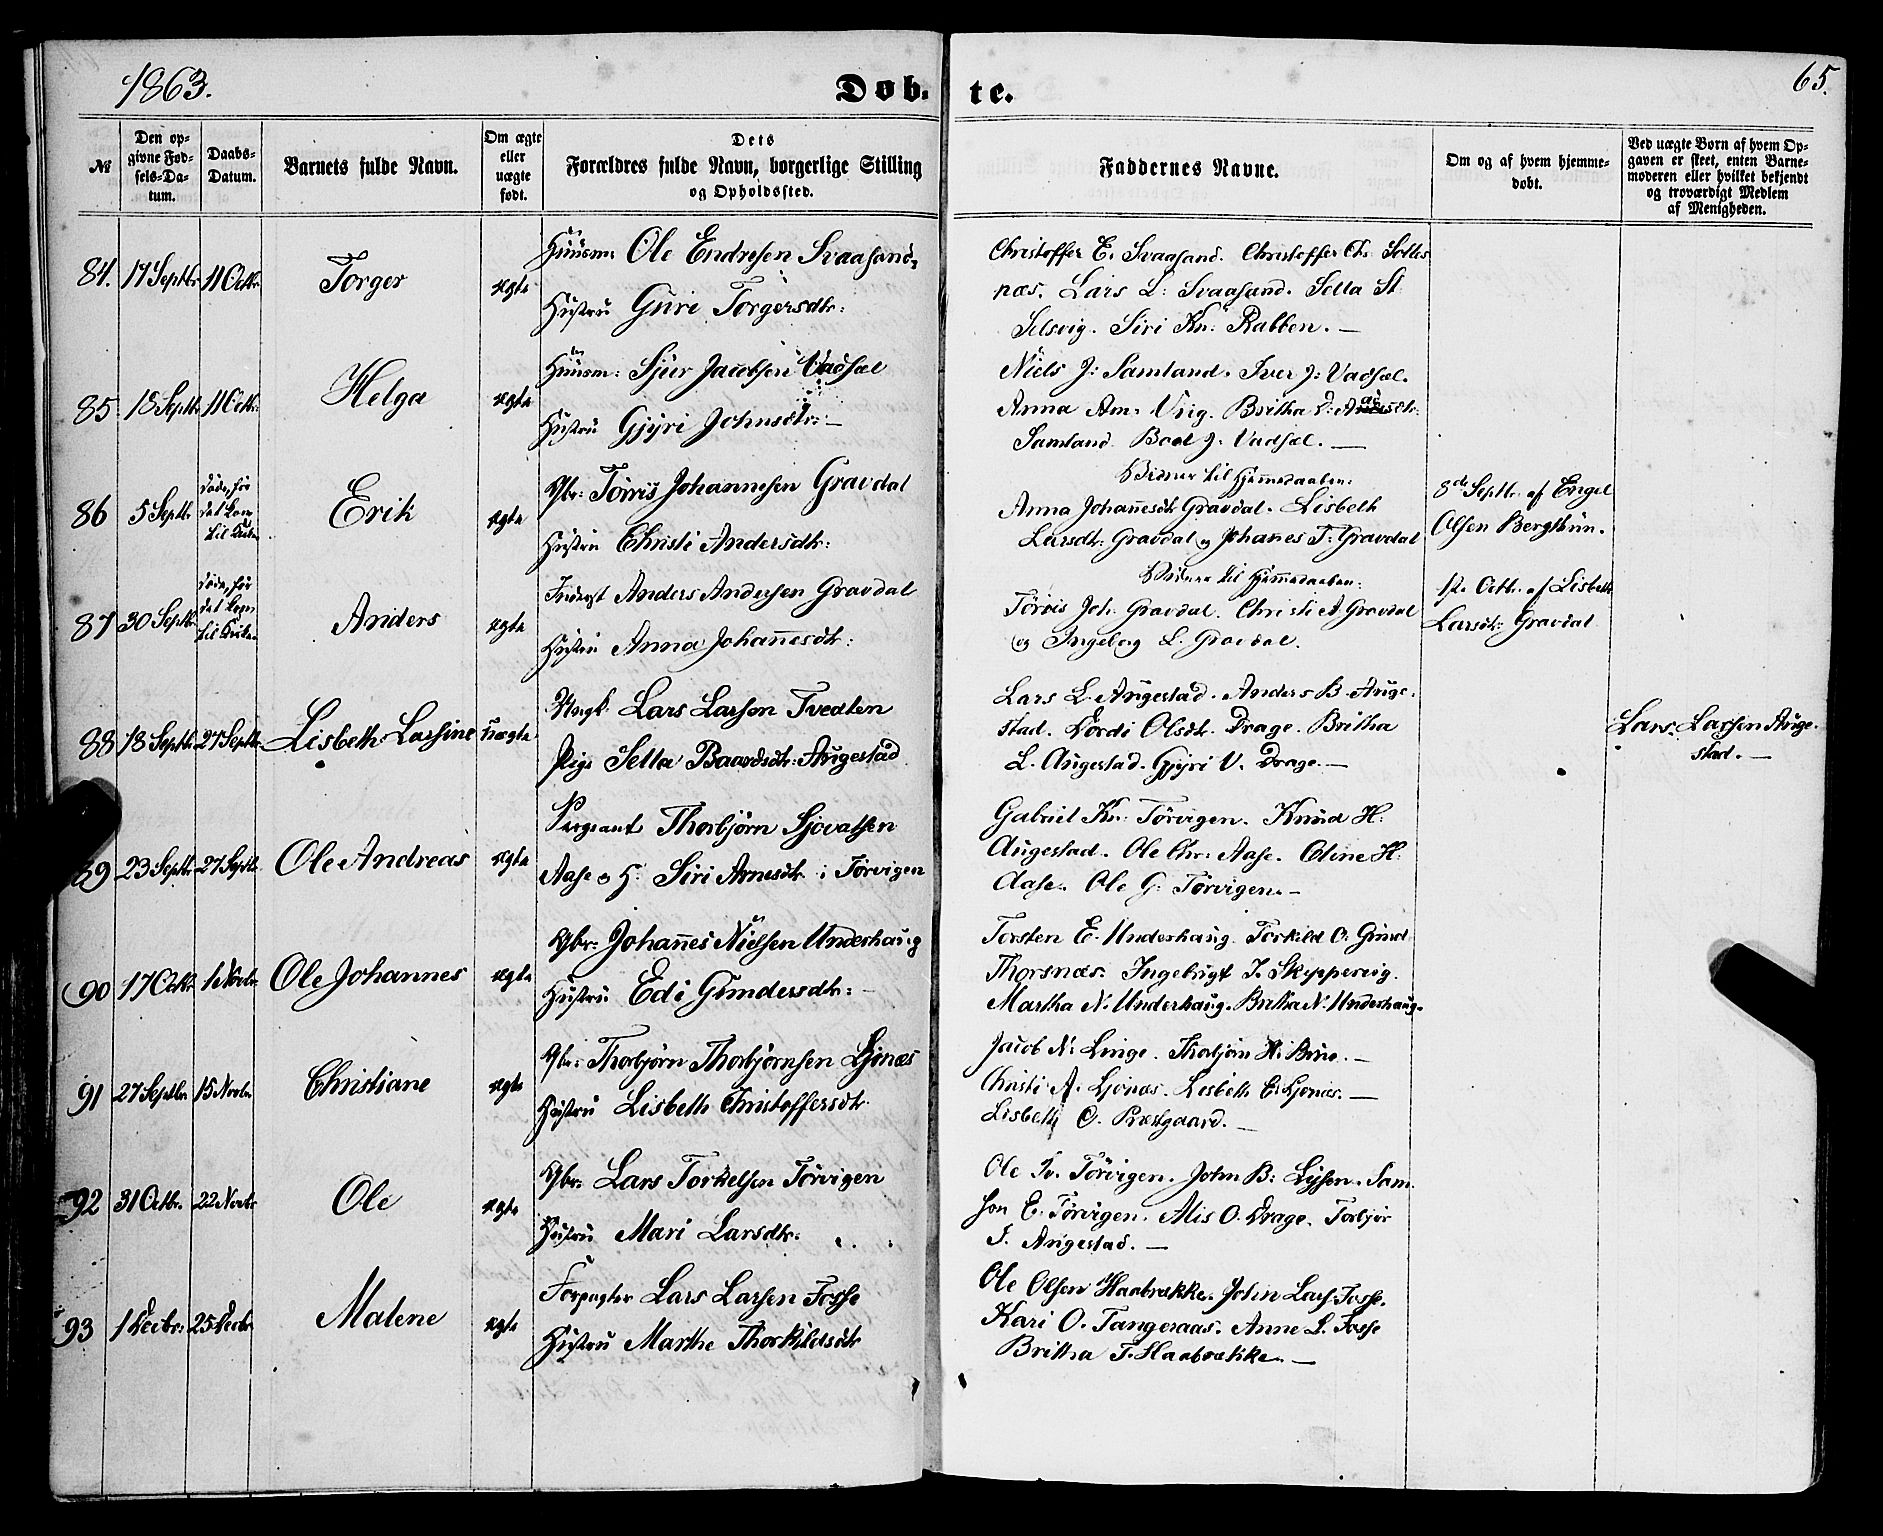 1863.
Døb-
te.
65.
№
Den op-
givne Fød-
sels-Da-
tum.
Daabs-
Datum.
Barnets fulde Navn.
Om ægte
eller
uægte
født.
Dets
Forældres fulde Navn, borgerlige Stilling
og Opholdssted.
Faddernes Navne.
Om og af hvem hjemme-
døbt.
Ved uægte Børn af hvem Op-
gaven er skeet, enten Barne-
moderen eller hvilket bekjendt
og troværdigt Medlem
af Menigheden.
84. 17 Septbr 11 Octbr. Torger ægte
Huusm: Ole Endresen Svaasand,
Hustru Guri Torgersdtr:
Christoffer E. Svaasand. Christoffer Chr. Solles
næs. Lars L: Svaasand. Setta St
Selsvig. Siri Kn: Rabben. —
85. 18 Septbr 11 Octbr. Helga ægte
Huusm: Sjur Jacobsen Vadsel
Hustru Gjyri Johnsdtr: —
Niels J: Samland. Iver J: Vadsel.
Anna Am: Vüg. Britha
Samland. Boel J: Vadsel. —
86 5 Septbr døde, før
det kom
til Kirken
Erik ægte
Gbr: Törris Johannesen Gravdal
Hustru Christi Andersdtr:
Vidner til Hjemmedaaben:
Anna Johannesdtr Gravdal. Lisbeth
Larsdtr: Gravdal og Johanes T: Gravdal
8de Septbr. af Engel
Olsen Bergthun.
87 30 Septbr døde, før
det kom
til Kirken
Anders ægte
Inderst Anders Andersen Gravdal
Hustru Anna Johannesdtr:
Vidner til Hjemmedaaben:
Törris Joh. Gravdal. Christi A Gravdal
og Ingeborg L. Gravdal.
1ste Octbr. af Lisbeth
Larsdtr: Gravdal
88 18 Septbr. 27 Septbr. Lisbeth Larsine uægte
Ungk. Lars Larsen Tvedten
Pige Setta Baardsdtr: Augestad
Lars L. Augestad. Anders B. Auge-
stad. Dordi Olsdtr. Drage. Britha
L. Augestad. Gjyri V. Drage. —
Lars Larsen Auge-
stad. —
89 23 Septbr 27 Septbr Ole Andreas ægte
Sergeant Thorbjörn Sjovatsen
Aase & H: Siri Arnesdtr i Törvigen
Gabriel Kn: Törvigen. Knud H:
Augestad. Ole Chr: Aase. Oline H:
Aase. Ole G: Törvigen. —
90 17 Octbr 1 Novbr Ole Johannes ægte
Gbr: Johannes Nielsen Underhaug
Hustru Edi Gundersdtr: —
Torsten E. Underhaug. Torkild O. Grimd
Thorsnæs. Ingebrigt J. Skippervig.
Martha N. Underhaug. Britha N. Underhaug.
91 27 Septbr 15 Novbr Christiane ægte
Gbr: Thorbjörn Thorbjörnsen Ljönæs
Hustru Lisbeth Christoffersdtr
Jacob N: Linge. Thorbjörn H: Brue. —
Christi A. Ljönæs. Lisbeth E. Ljönæs. —
Lisbeth O. Præstgaard. —
92 31 Octbr. 22 Novbr Ole ægte
Gbr: Lars Torkelsen Törvigen
Hustru Mari Larsdtr:
Ole Tv. Törvigen. John B: Lysen. Sam-
son E. Törvigen. Alis O. Drage. Torbjör
J. Augestad. —
93 1 Decbr: 25 Decbr Malene ægte
Forpagter Lars Larsen Fosse
Hustru Marthe Thorkildsdtr
Ole Olsen Haabrække. John Lars. Fosse.
Kari O. Tangeraas. Anne L. Fosse
Britha T. Haabrække. —